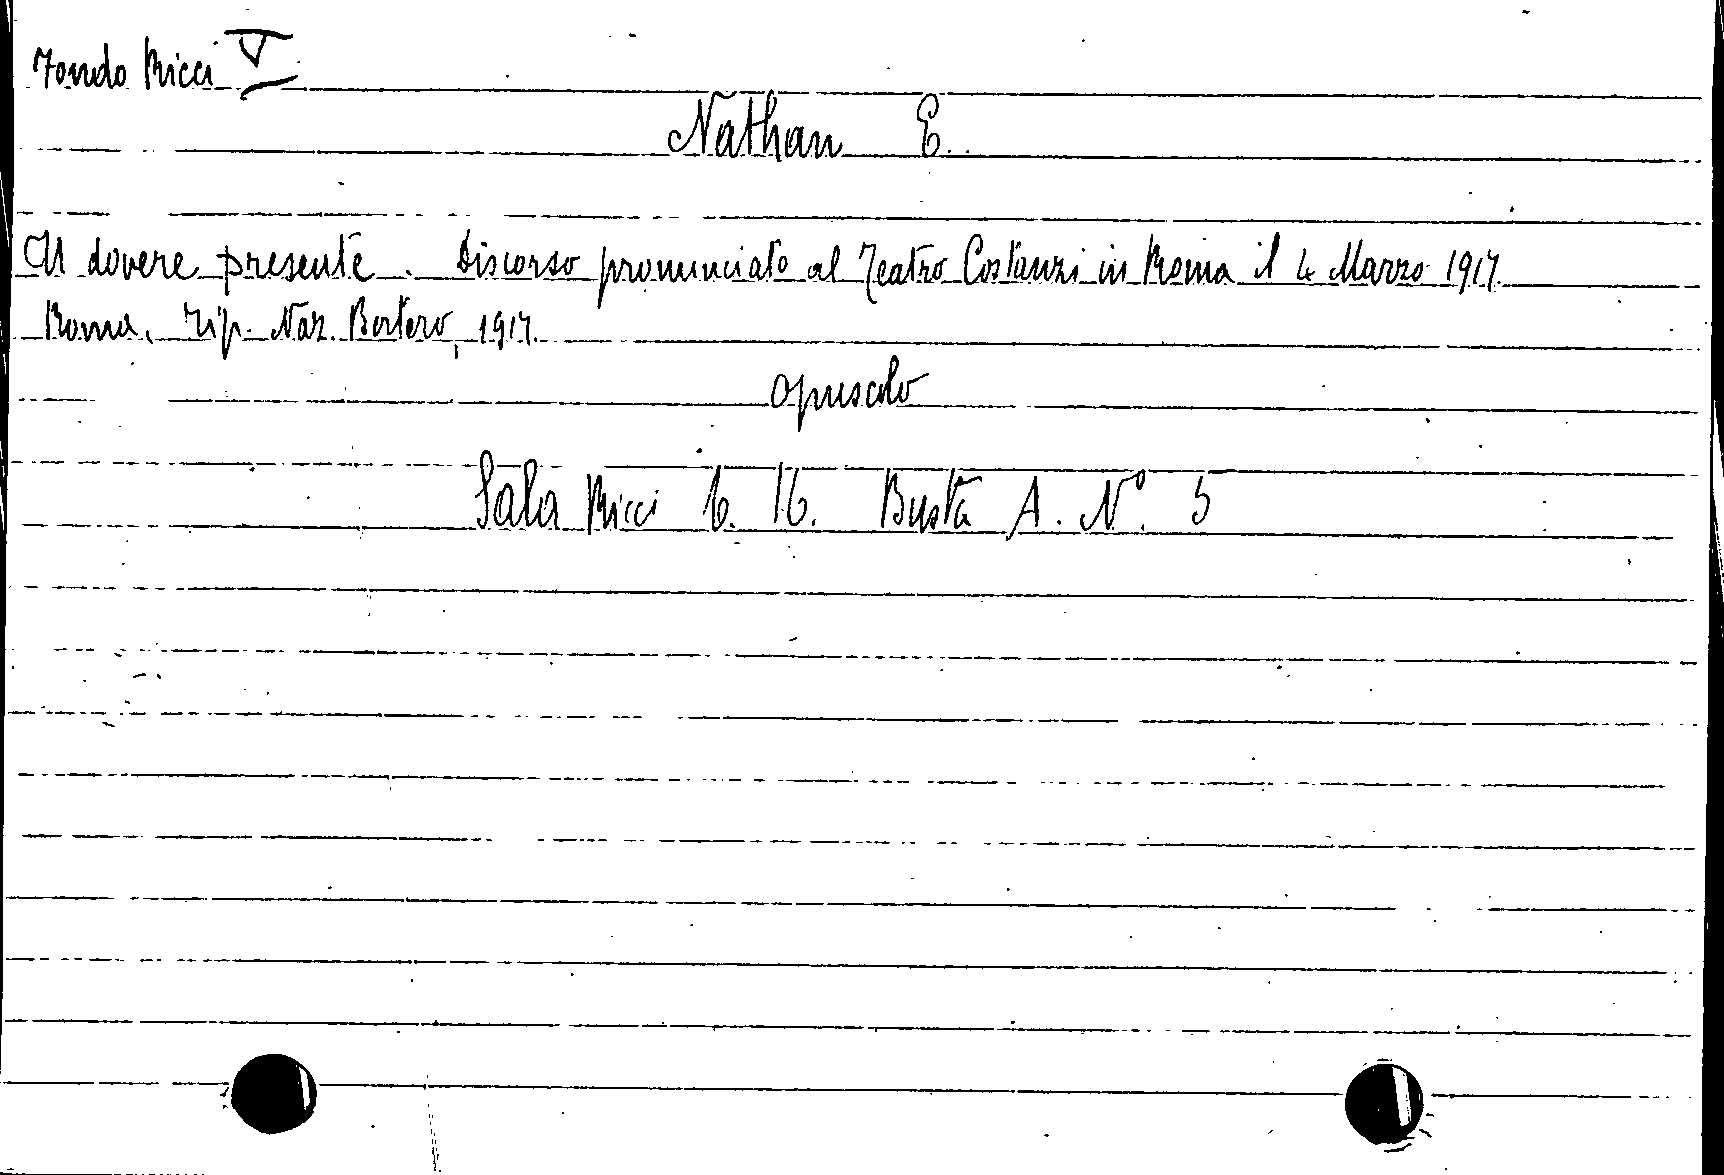 Fondo Ricci V
Nathan E.
Il dovere presente. Discorso pronunciato al Teatro Costanzi in Roma il 4 Marzo 1917.
Roma, Tip. Naz. Bertero, 1917.
opuscolo
Sala Ricci 6. 16. Busta A. N° 5